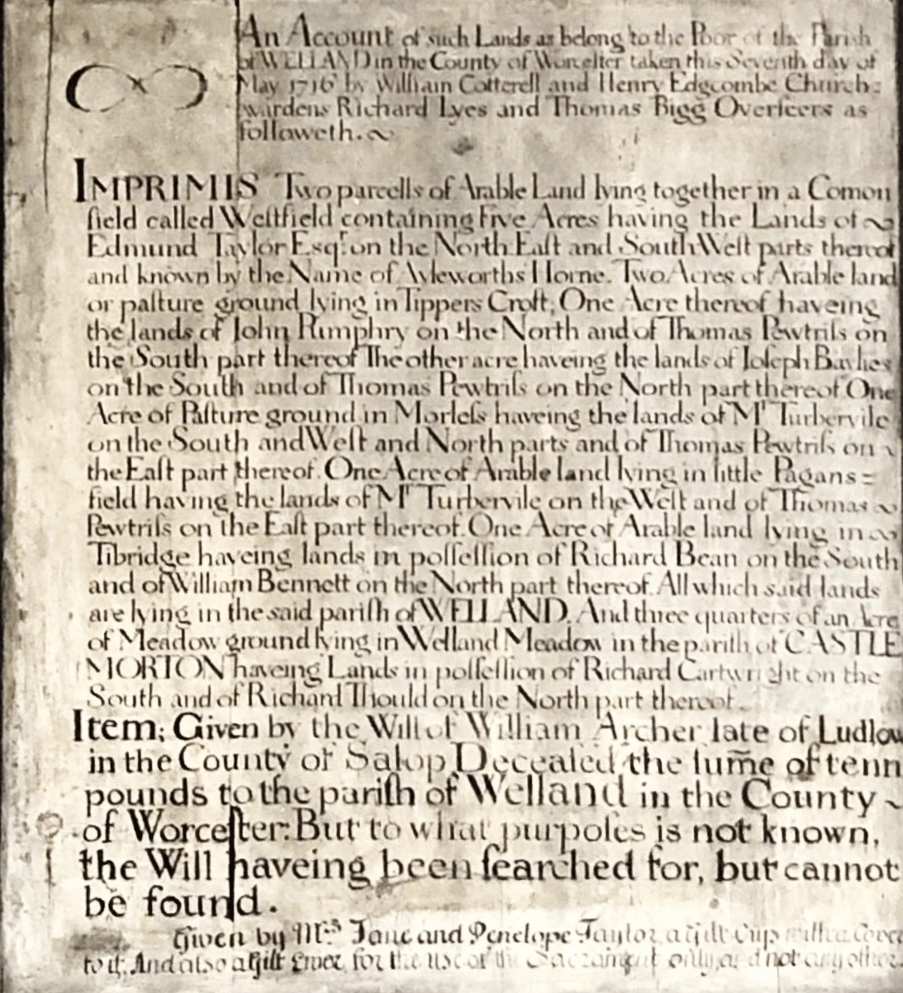 An Account of such Lands as belong to the Poor of the Parish
of WELLAND in the County of Worceſter taken this Seventh day of
May 1716 by William Cotterell and Henry Edgcombe Church=
wardens Richard Lyes and Thomas Bigg Overſeers as
followeth.
IMPRIMIS Two parcells of Arable Land lying together in a Comon
field called Weſtfield containing Five Acres having the Lands of
Edmund Taylor Esqr. on the North Eaſt and South Weſt parts thereof
and known by the Name of Ayleworths Horne. Two Acres of Arable land
or paſture ground lying in Tippers Croft, One Acre thereof haveing
the lands of John Rimphry on the North and of Thomas Pewtriſs on
the South part thereof The other acre haveing the lands of Joſeph Baylies
on the South and of Thomas Pewtriſs on the North part thereof One
Acre of Paſture ground in Morleſs haveing the lands of Mr Turbervile
on the South and Weſt and North parts and of Thomas Pewtriſs on
the Eaſt part thereof. One Acre of Arable land lying in little Pagans=
field having the lands of Mr Turbervile on the Weſt and of Thomas
Pewtriſs on the Eaſt part thereof. One Acre of Arable land lying in
Tibridge haveing lands in poſſeſſion of Richard Bean on the South
and of William Bennett on the North part thereof. All which said lands
are lying in the said pariſh of WELLAND. And three quarters of an Acre
of Meadow ground lying in Welland Meadow in the pariſh of CASTLE
MORTON haveing Lands in poſſeſſion of Richard Cartwright on the
South and of Richard Thould on the North part thereof.
Item; Given by the Will of William Archer late of Ludlow
in the County of Salop Deceaſed, the sum̅e of tenn
pounds to the pariſh of Welland in the County
of Worceſter: But to what purpoſes is not known,
the Will haveing been ſearched for, but cannot
be found.
Given by Mrs Jane and Penelope Taylor, a gilt Cup with a Cover
to it, And also a gilt Ewer, for the use of the Sacrament only, and not any other